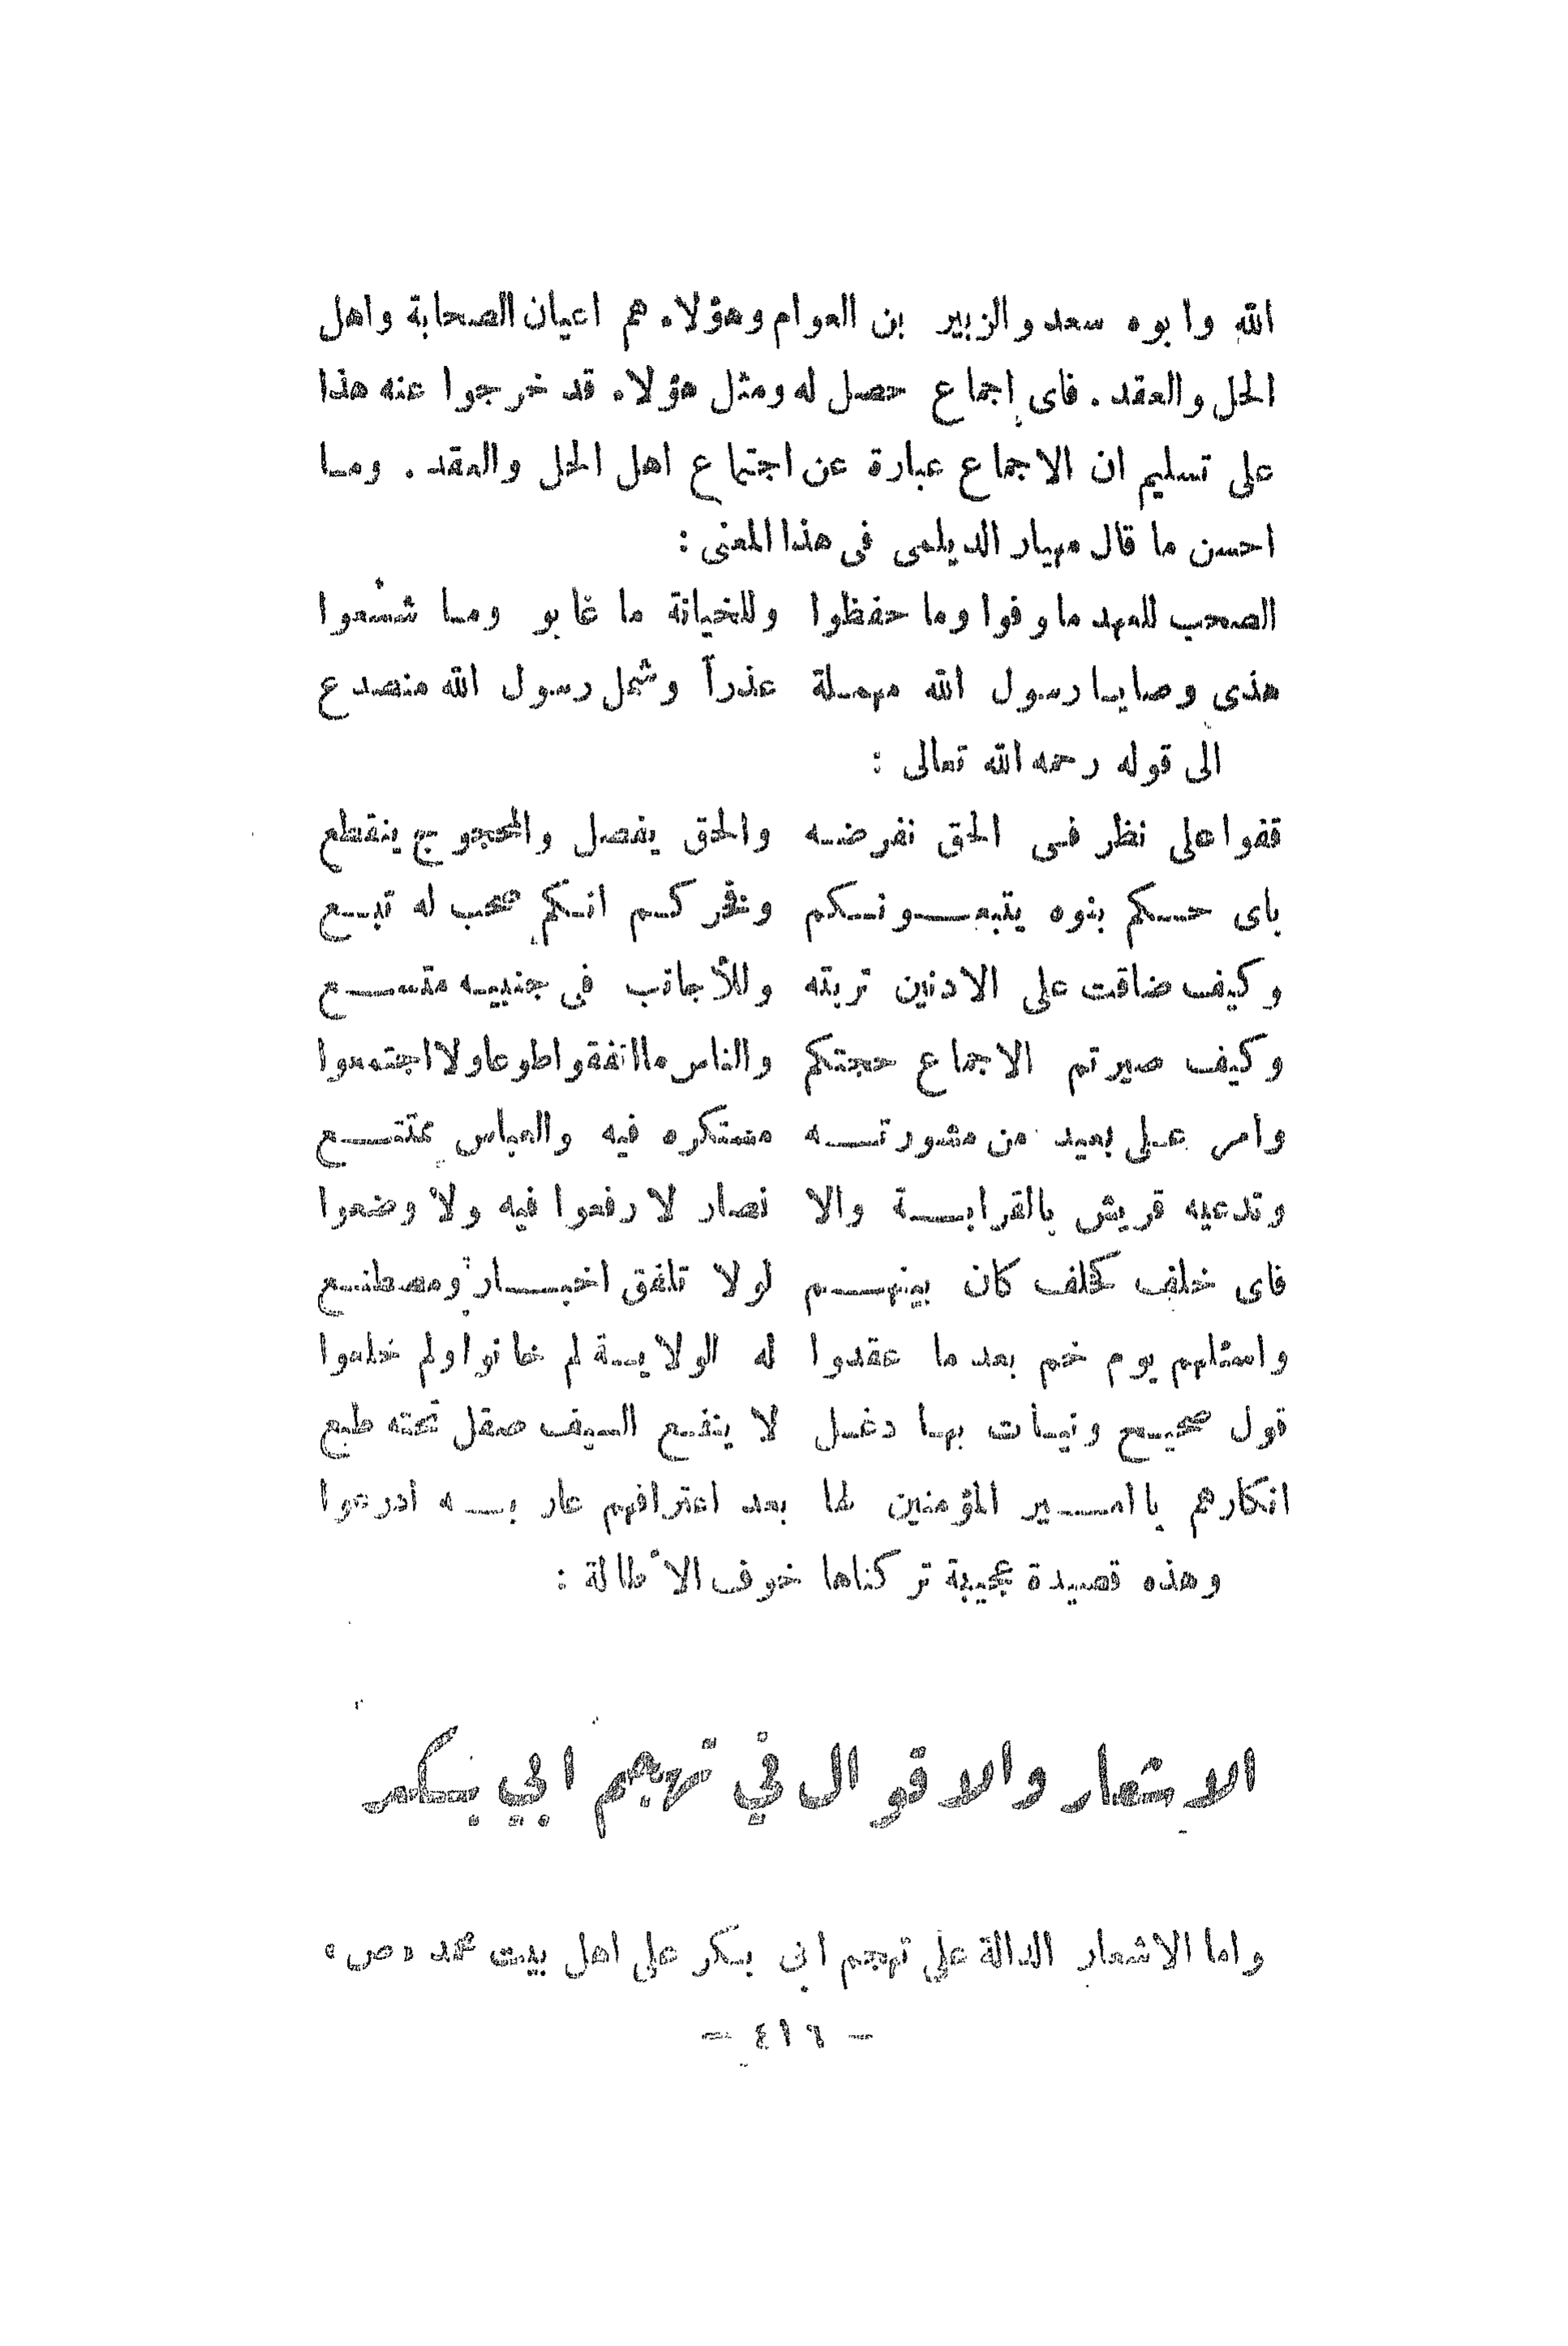 الله وابوه سعد والزبير بن العوام وهؤلاء هم اعيان الصحابة واهل
الحل والعقد . فاى اجماع حصل له ومثل هؤلاء قد خرجوا عنه هذا
على تسليم ان الاجماع عبارة عن اجتماع اهل الحل والعقد . ومـا
احسن ما قال مهيار الديلمى فى هذا المعنى :
الصحب للعهد ماوفوا وما حفظوا وللخيانة ما غابو ومـا شسْعوا
هذى وصايـا رسول الله مهمـلة عذراً وشمل رسول الله منصدع
الى قوله رحمه الله تعالى :
قفوا على نظر فـى الحق نفرضـه والحق يفصل والمحجوج ينقطع
باى حـكم بنوه يتبعـونـكم وفخركـم انـكم صحب له تبـع
وكيف ضاقت على الادنين تربته وللأجانب فى جنبيـه متسـع
وكيف صيرتم الاجماع حجتكم والناس مااتفقوا طوعا ولا اجتمعوا
وامر عـلى بعيد من مشورتـه مستكره فيه والعباس يمتنـع
وتدعيه قريش بالقرابـة والا نصار لا رفعوا فيه ولا وضعوا
فاى خلف كخلف كان بينهـم لولا تلفق اخبـار ومصطنـع
واسئلهم يوم خم بعد ما عقدوا له الولايـة لم خانوا ولم خلعوا
قول صحيـح ونيـات بهـا دغـل لا ينفـع السيف صقل تحته طبع
انكارهم ياامـير المؤمنين لها بعد اعترافهم عار بـه ادرعوا
وهذه قصيدة عجيبة تركناها خوف الأطالة :
الاشعار والاقوال في تهجم ابي بـكر
واما الاشعار الدالة على تهجم ابى بـكر على اهل بيت محمد «ص»
- ٤١٦ -